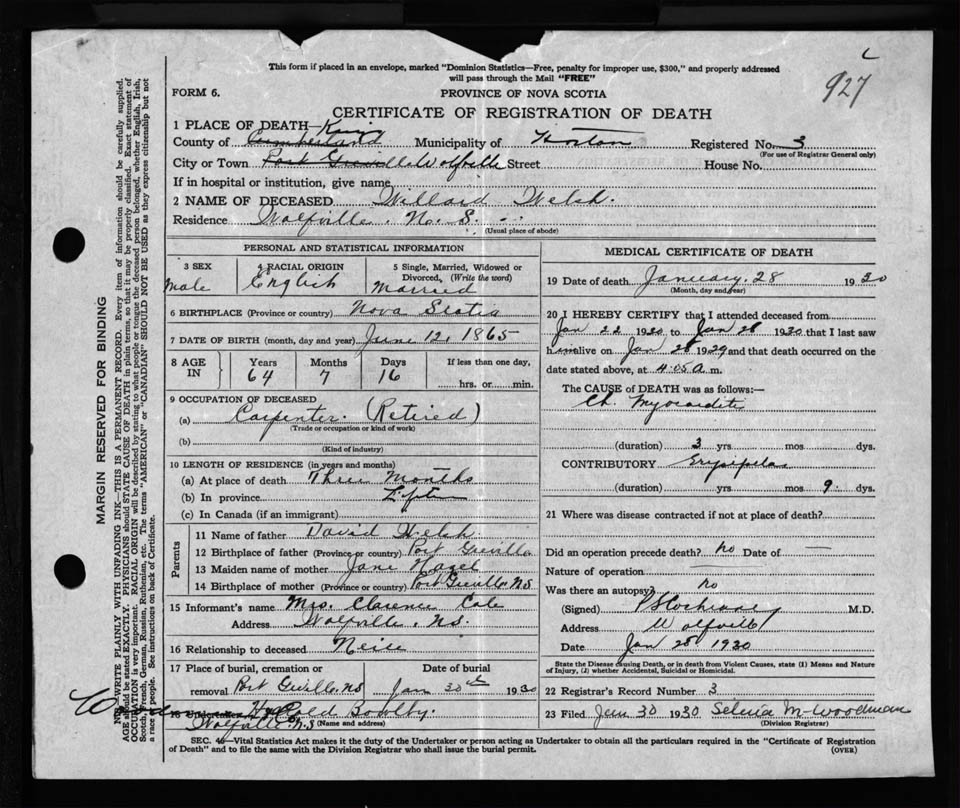 This form if placed in an envelope, marked "Dominion Statistics—Free, penalty for improper use, $300," and properly addressed
will pass through the Mail "FREE"
927
FORM 6.
PROVINCE OF NOVA SCOTIA
CERTIFICATE OF REGISTRATION OF DEATH
1 PLACE OF DEATH— Kings
County of Cumberland Municipality of Horton Registered No. 3
(For use of Registrar General only)
City or Town Port Greville Wolfville Street House No.
If in hospital or institution, give name
2 NAME OF DECEASED Willard Welsh.
Residence Wolfville. N. S.
(Usual place of abode)
PERSONAL AND STATISTICAL INFORMATION
3 SEX Male
4 RACIAL ORIGIN English
5 Single, Married, Widowed or Divorced, (Write the word) Married
6 BIRTHPLACE (Province or country) Nova Scotia
7 DATE OF BIRTH (month, day and year) June 12, 1865
8 AGE IN Years 64 Months 7 Days 16 If less than one day, hrs. or min.
9 OCCUPATION OF DECEASED
(a) Carpenter. (Retired)
(Trade or occupation or kind of work)
(b)
(Kind of industry)
10 LENGTH OF RESIDENCE (in years and months)
(a) At place of death Three Months
(b) In province
(c) In Canada (if an immigrant)
Parents
11 Name of father David Welsh
12 Birthplace of father (Province or country) Port Greville
13 Maiden name of mother Jane
14 Birthplace of mother (Province or country) Port Greville NS
15 Informant's name Mrs. Clarence Cole
Address Wolfville. NS.
16 Relationship to deceased Neice
17 Place of burial, cremation or removal Port Greville NS Date of burial Jan 30th 1930
18 Undertaker Harold
Wolfville NS (Name and address)
MEDICAL CERTIFICATE OF DEATH
19 Date of death January. 28 1930
(Month, day and year)
20 I HEREBY CERTIFY that I attended deceased from
Jan 22 1930 to Jan 28 1930 that I last saw
him alive on Jan 28 1929 and that death occurred on the
date stated above, at 4.05 a.m.
The CAUSE of DEATH was as follows:—
Ch. Myocardite
(duration) 3 yrs mos dys.
CONTRIBUTORY Erysipelas
(duration) yrs mos 9 dys.
21 Where was disease contracted if not at place of death?
Did an operation precede death? no Date of —
Nature of operation —
Was there an autopsy? no
(Signed) Cochrane M.D.
Address Wolfville
Date Jan 28 1930
State the Disease causing Death, or in death from Violent Causes, state (1) Means and Nature
of Injury, (2) whether Accidental, Suicidal or Homicidal.
22 Registrar's Record Number 3
23 Filed Jan 30 1930 Selena M. Woodman
(Division Registrar)
SEC. —Vital Statistics Act makes it the duty of the Undertaker or person acting as Undertaker to obtain all the particulars required in the "Certificate of Registration
of Death" and to file the same with the Division Registrar who shall issue the burial permit.
(OVER)
MARGIN RESERVED FOR BINDING
WRITE PLAINLY WITH UNFADING INK—THIS IS A PERMANENT RECORD. Every item of information should be carefully supplied.
AGE should be stated EXACTLY. PHYSICIANS should STATE CAUSE OF DEATH in plain terms, so that it may be properly classified. Exact statement of
OCCUPATION is very important. RACIAL ORIGIN will be described by stating to what people or tongue the deceased person belonged, whether English, Irish,
Scotch, French, German, Russian, Ruthenian, etc. The terms "AMERICAN" or "CANADIAN" SHOULD NOT BE USED as they express citizenship but not
a race or people. See instructions on back of Certificate.